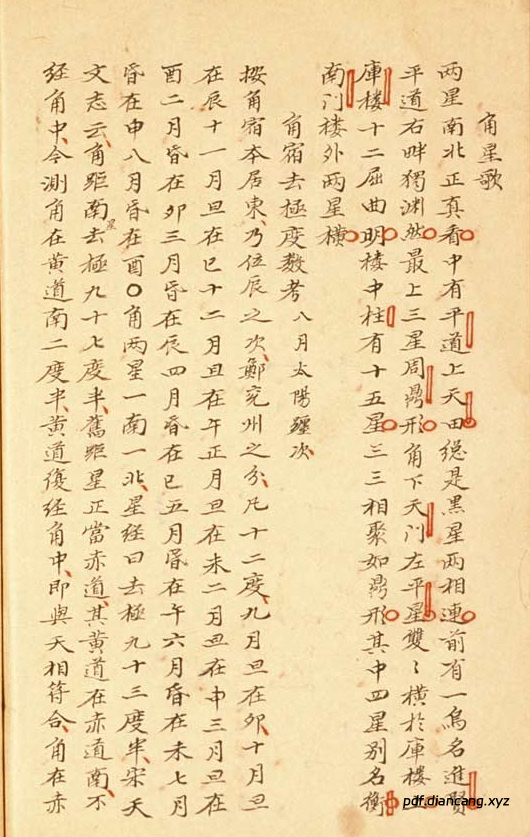 角星歌
两星南北正直看中有平道上天田总是黑星两相连前有一乌名进贤
平道右畔獨渊然最上三星周鼎形角下天门左平星雙〻横於库楼上
庫楼十二屈曲明楼中柱有十五星三三相聚如鼎形其中四星别名衡
南门楼外两星横
角宿去極度数考八月太陽躔次
按角宿夲居東乃位辰之次鄭兖州之分凡十二度九月旦在卯十月旦
在辰十一月旦在巳十二月旦在午正月旦在未二月旦在申三月旦在
酉二月昏在卯三月昏在辰四月昏在巳五月昏在午六月昏在未七月
昏在申八月昏在酉〇角两星一南一北星经曰去極九十三度半宋天
文志云角距南星去極九十七度半舊距星正當赤道其黄道在赤道南不
经角中今測角在黄道南二度半黄道復经角中即與天相符合角在赤
pdf.diancang.xyz